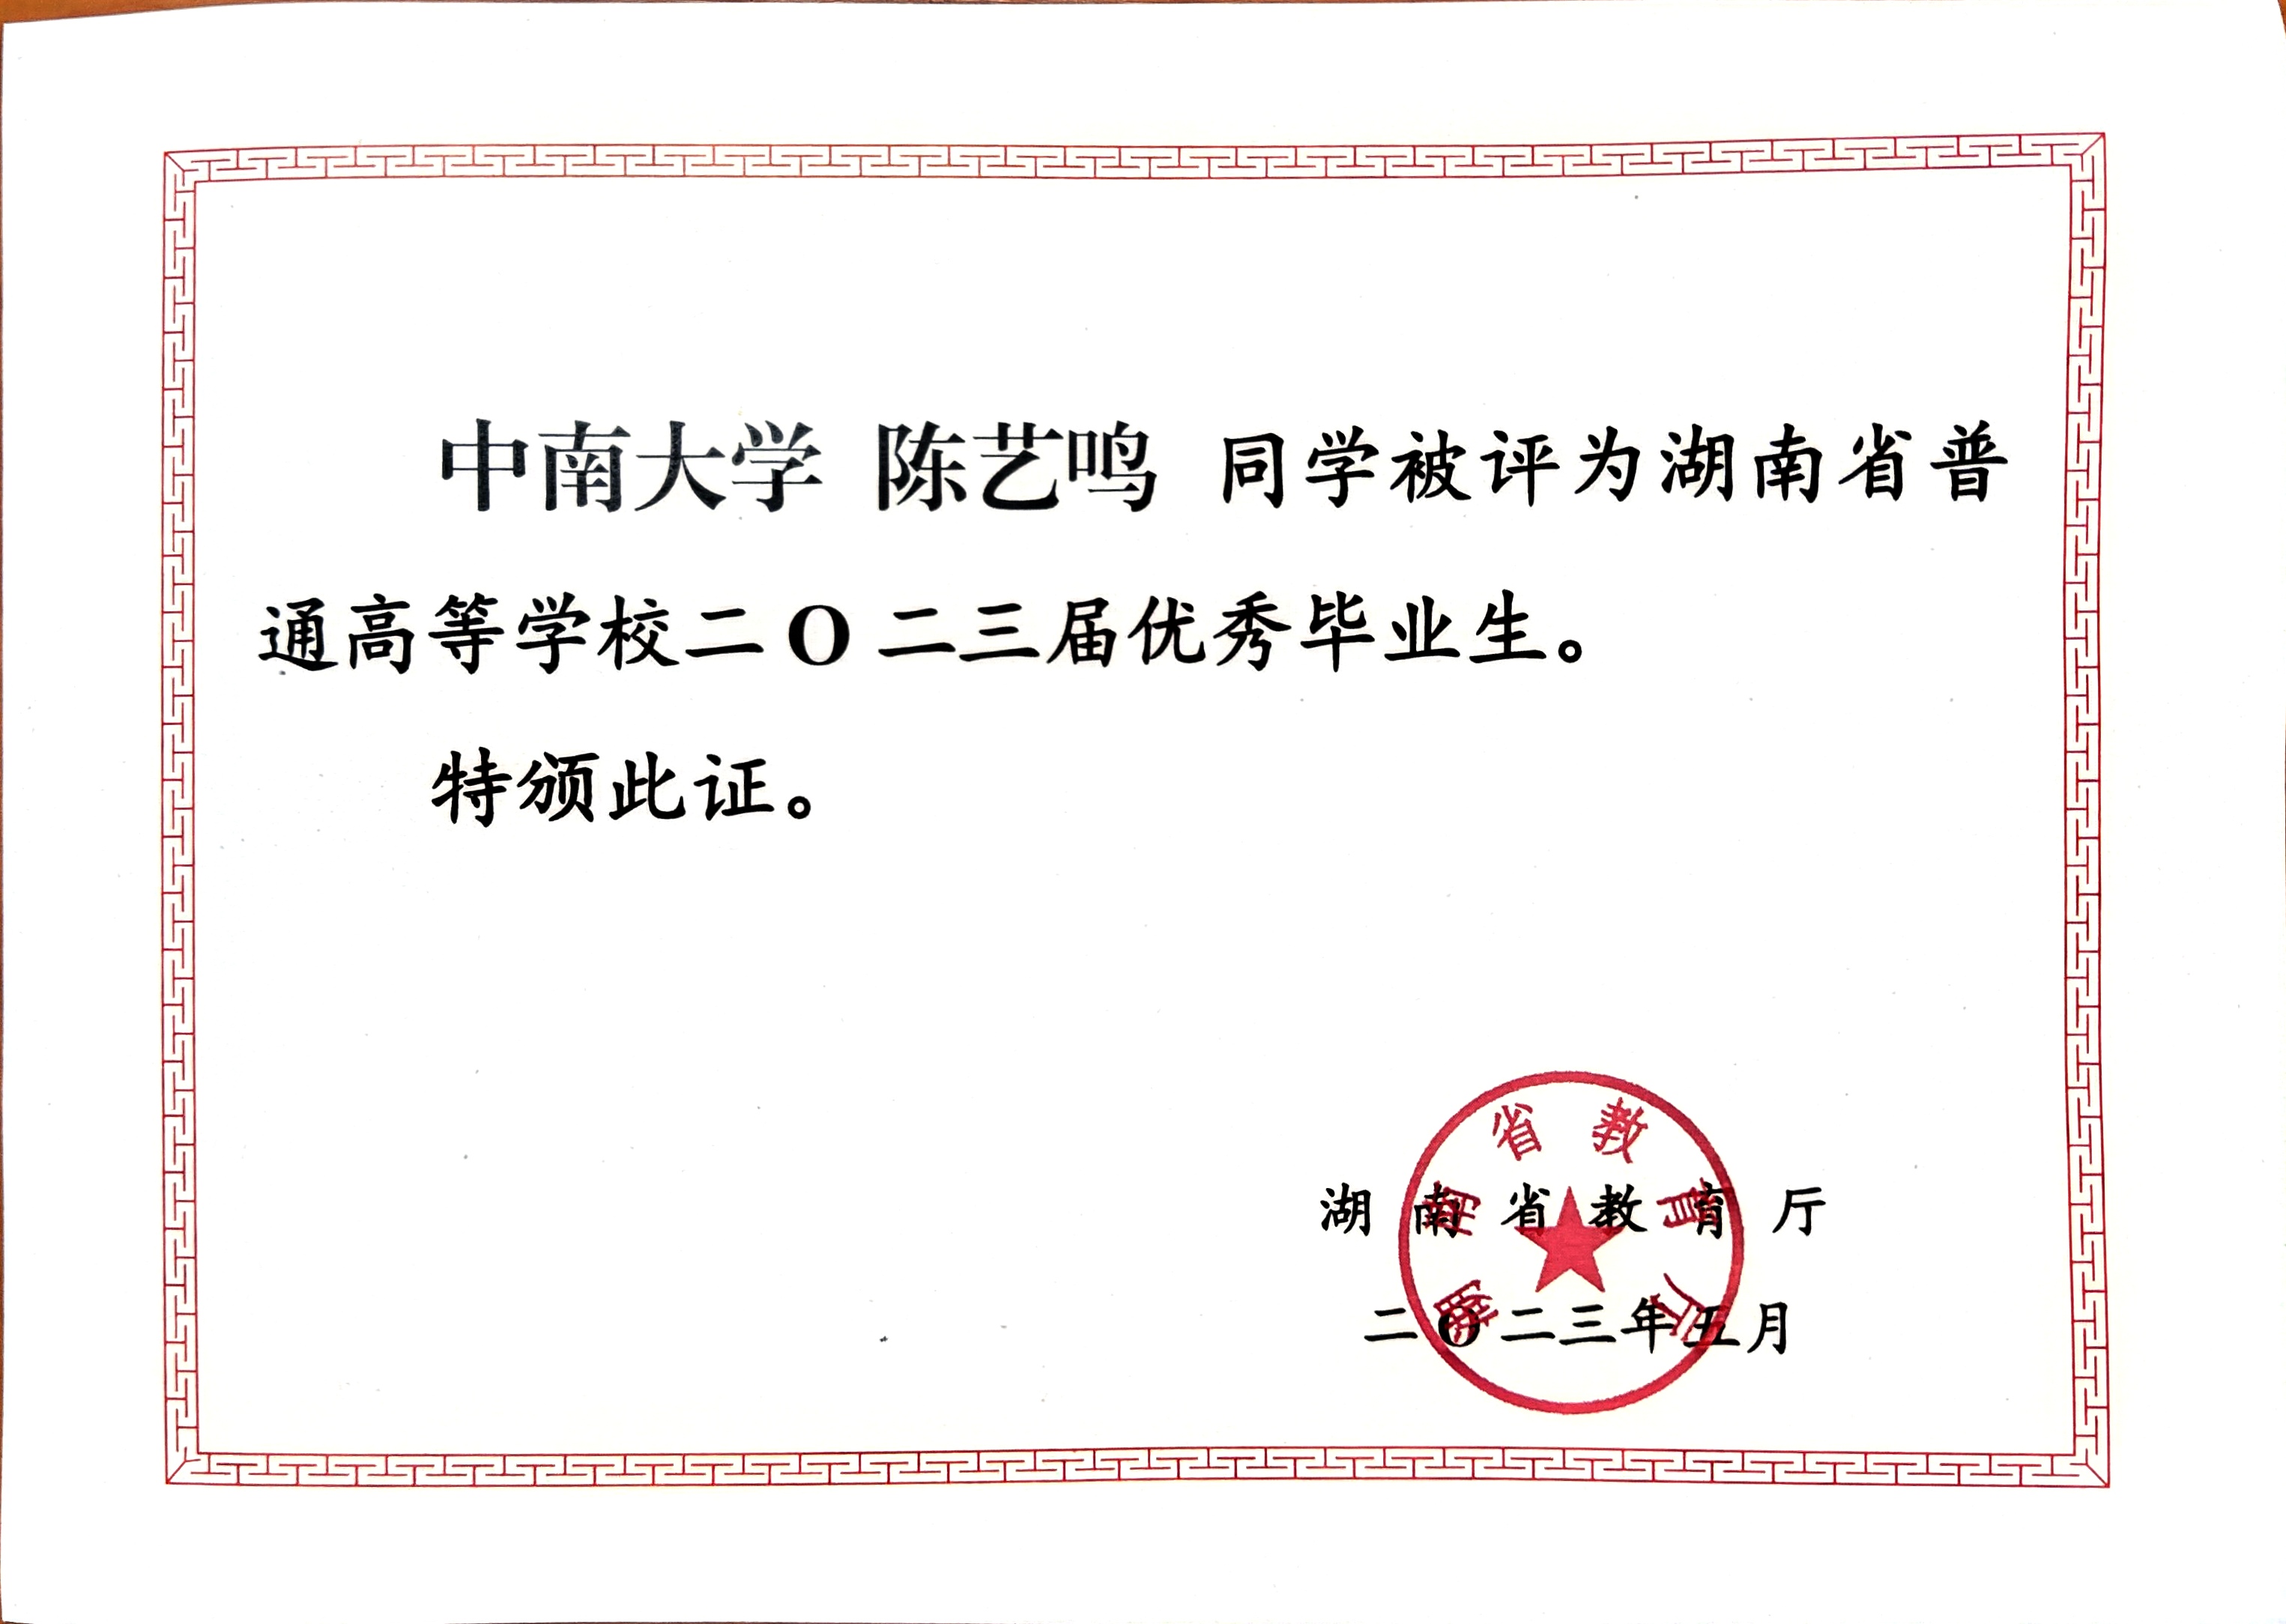 中南大学 陈艺鸣 同学被评为湖南省普
通高等学校二〇二三届优秀毕业生。
特颁此证。
湖南省教育厅
二〇二三年五月
湖南省教育厅